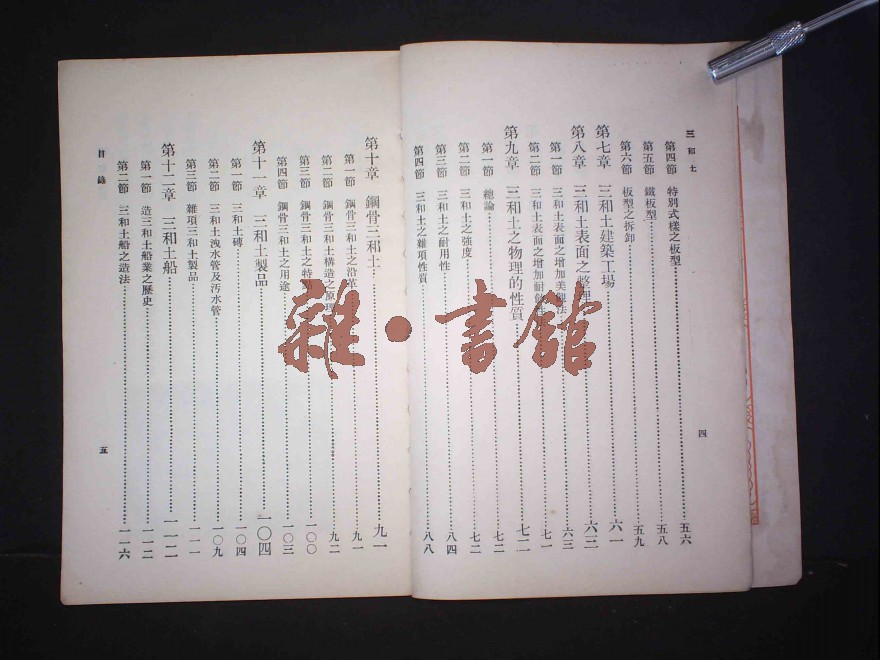 三和土
第四節 特別式樣之板型 五六
第五節 鐵板型 五八
第六節 板型之拆卸 五九
第七章 三和土建築工場 六一
第八章 三和土表面之整理 六三
第一節 三和土表面之增加美觀法 六三
第二節 三和土表面之增加耐 七一
第九章 三和土之物理的性質 七二
第一節 總論 七二
第二節 三和土之強度 七二
第三節 三和土之耐用性 八四
第四節 三和土之雜項性質 八八
四
第十章 鋼骨三和土 九一
第一節 鋼骨三和土之沿革 九一
第二節 鋼骨三和土構造之原理 九二
第三節 鋼骨三和土之特點 一〇〇
第四節 鋼骨三和土之用途 一〇三
第十一章 三和土製品 一〇四
第一節 三和土磚 一〇四
第二節 三和土洩水管及汚水管 一〇九
第三節 雜項三和土製品 一一一
第十二章 三和土船 一一二
第一節 造三和土船業之歷史 一一二
第二節 三和土船之造法 一一六
目錄
五
雜·書館